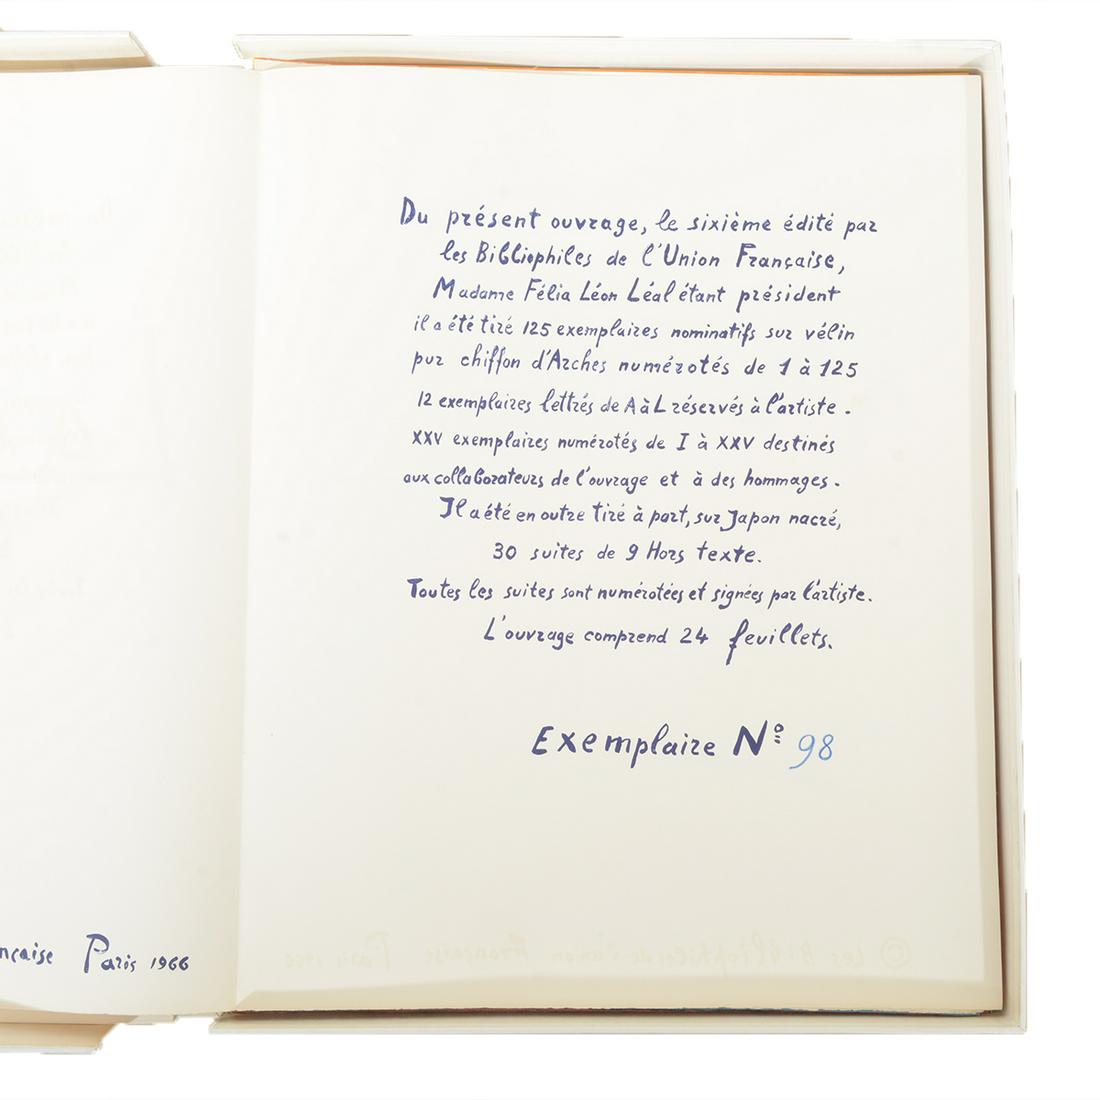 Du présent ouvrage, le sixième édité par
les Bibliophiles de l'Union Française,
Madame Félia Léon Léal étant président
il a été tiré 125 exemplaires nominatifs sur vélin
pur chiffon d'Arches numérotés de 1 à 125
12 exemplaires lettrés de A à L réservés à l'artiste.
XXV exemplaires numérotés de I à XXV destinés
aux collaborateurs de l'ouvrage et à des hommages.
Il a été en outre tiré à part, sur Japon nacré,
30 suites de 9 Hors texte.
Toutes les suites sont numérotées et signées par l'artiste.
L'ouvrage comprend 24 feuillets.
Exemplaire Nº 98
nçaise Paris 1966
© Les Bibliophiles de l'Union Française Paris 1966